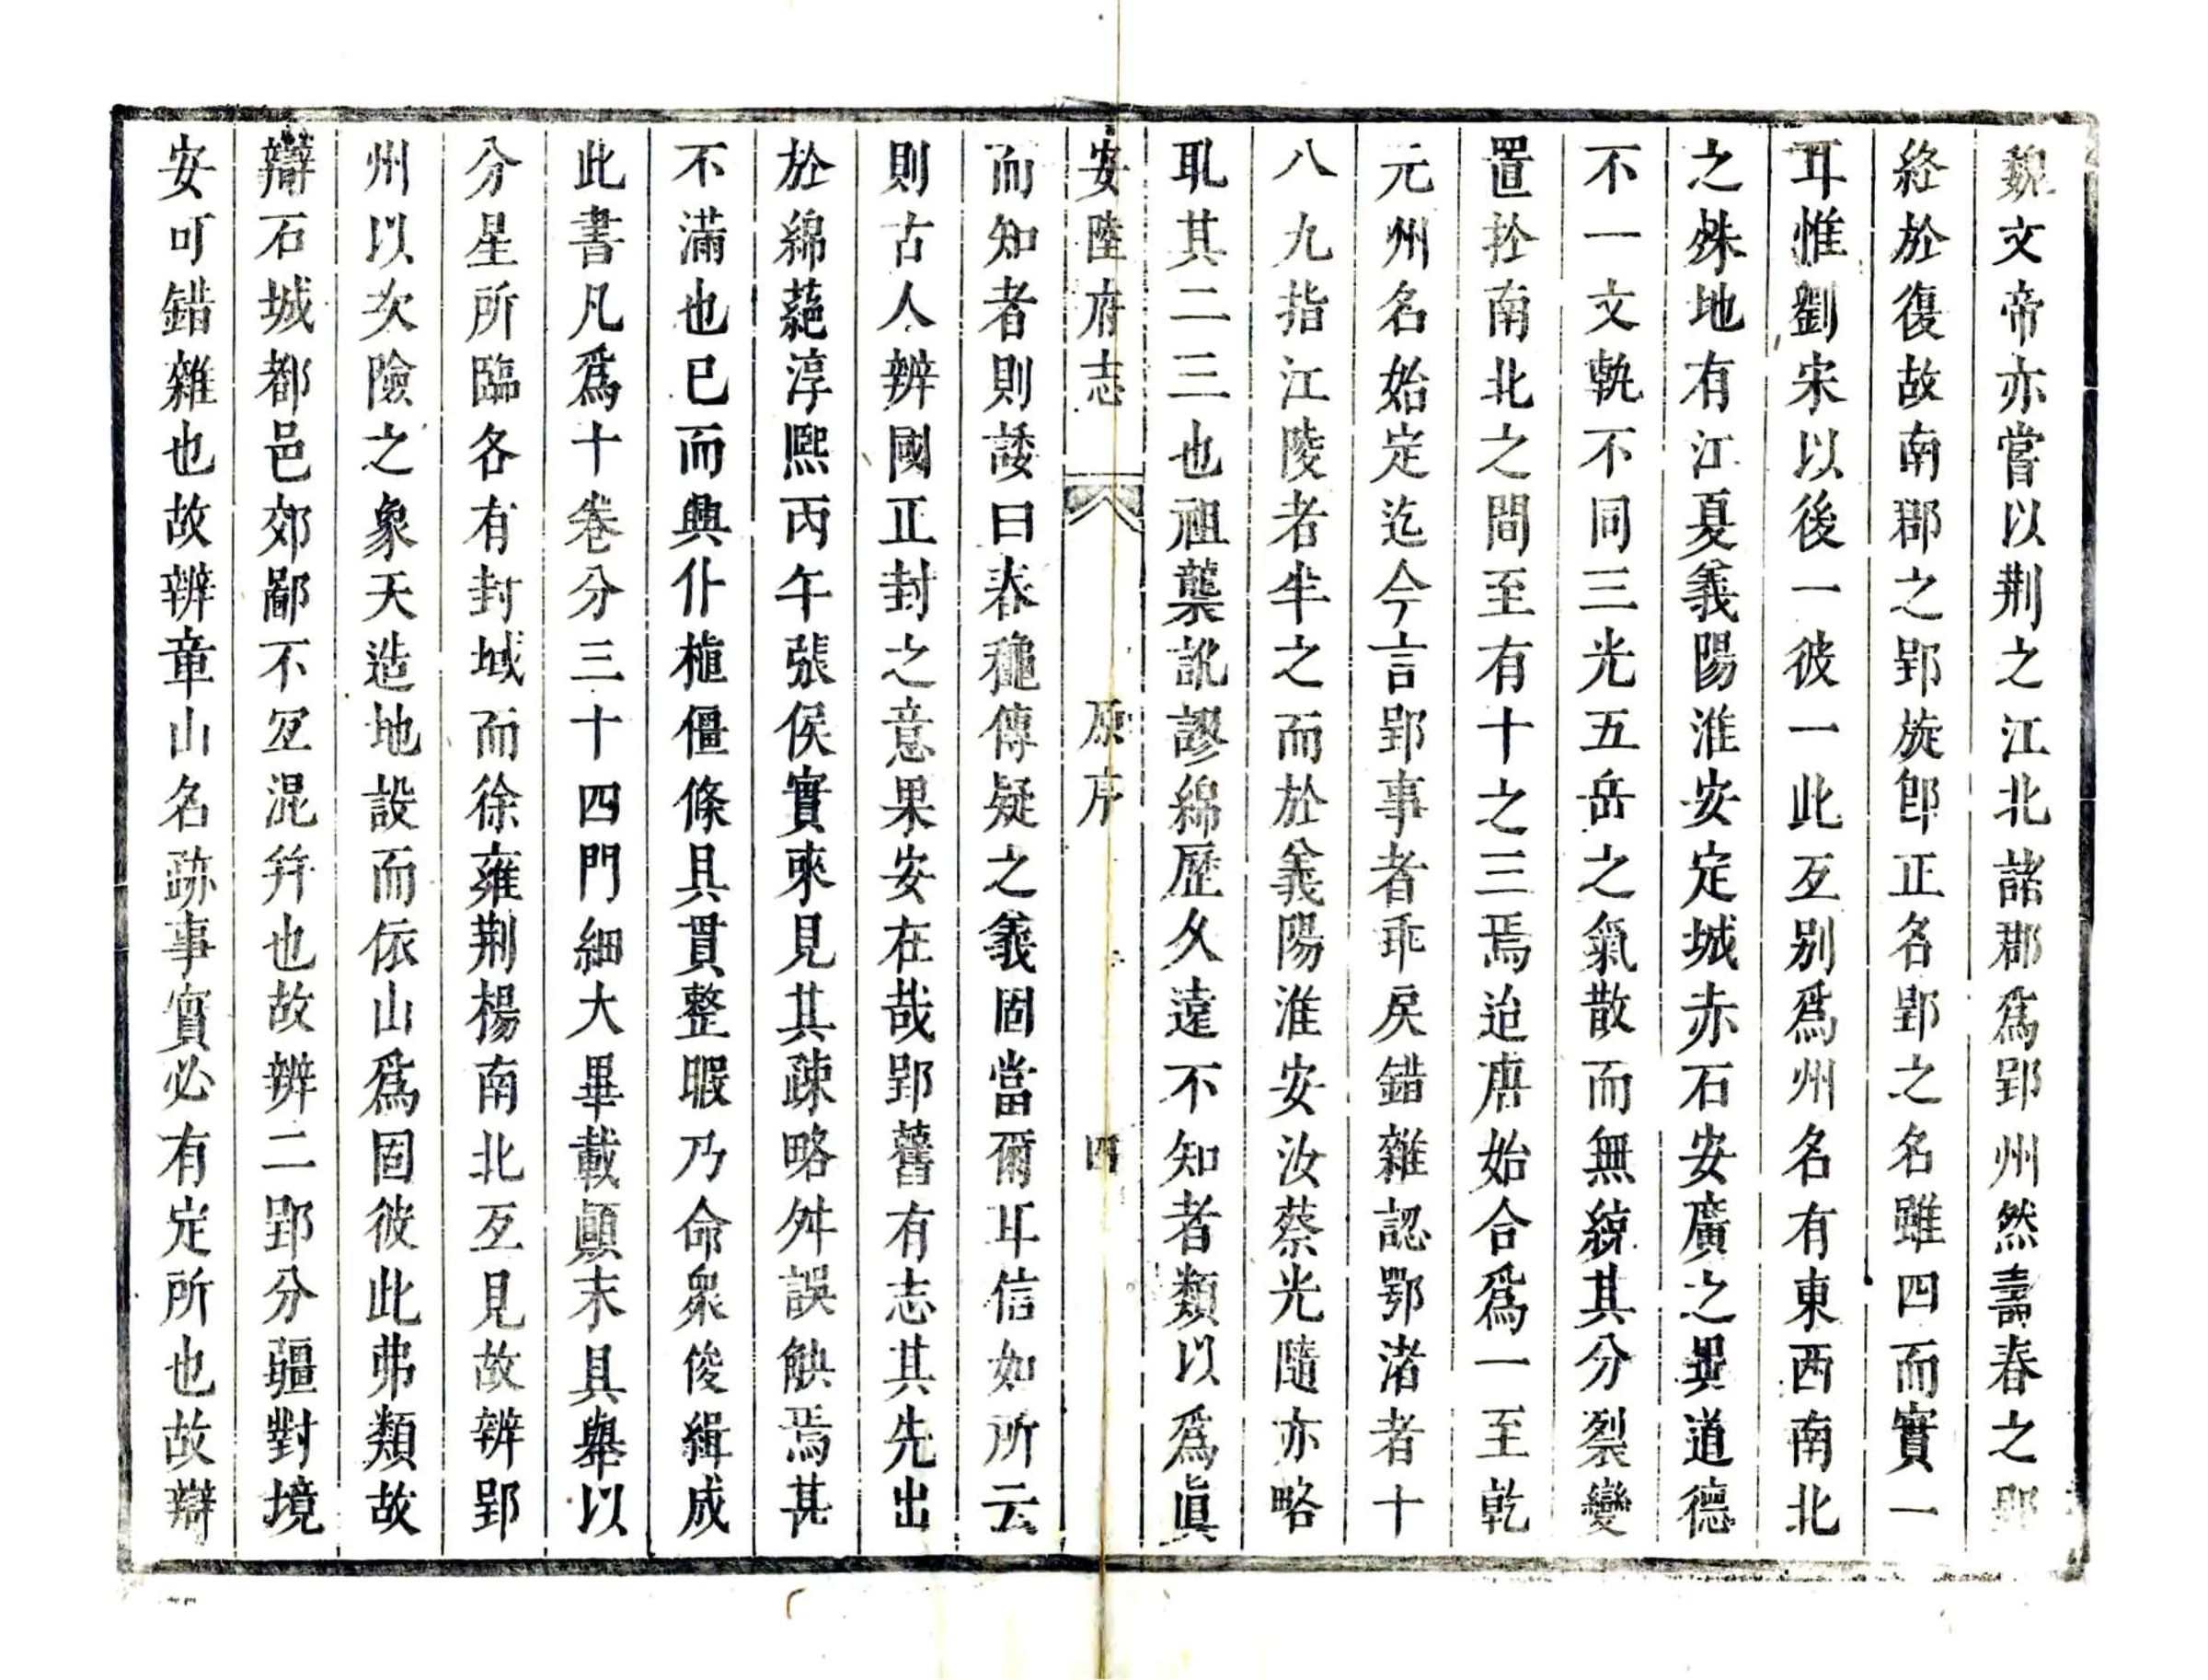 魏文帝亦嘗以荆之江北諸郡爲郢州然壽春之郢
終於復故南郡之郢旋卽正名郢之名雖四而實一
耳惟劉宋以後一彼一此互别爲州名有東西南北
之殊地有江夏義陽淮安定城赤石安廣之異道德
不一文軌不同三光五岳之氣散而無統其分裂變
置扵南北之間至有十之三焉迨唐始合爲一至乾
元州名始定迄今言郢事者乖戾錯雜認鄂渚者十
八九指江陵者半之而於義陽淮安汝蔡光隨亦略
耴其二三也祖襲訛謬綿歷久遠不知者類以爲眞
安陸府志 原序 四
而知者則諉曰春穐傳疑之義固當爾耳信如所云
則古人辨國正封之意果安在哉郢舊有志其先出
於綿蕝淳熙丙午張侯實來見其疎略舛誤觖焉甚
不滿也已而興仆植僵條具貫整暇乃命衆俊緝成
此書凡爲十卷分三十四門細大畢載顚末具舉以
分星所臨各有封域而徐雍荆楊南北互見故辨郢
州以次險之象天造地設而依山爲固彼此弗類故
辯石城都邑郊鄙不冝混幷也故辨二郢分疆對境
安可錯雜也故辨章山名跡事實必有定所也故辯